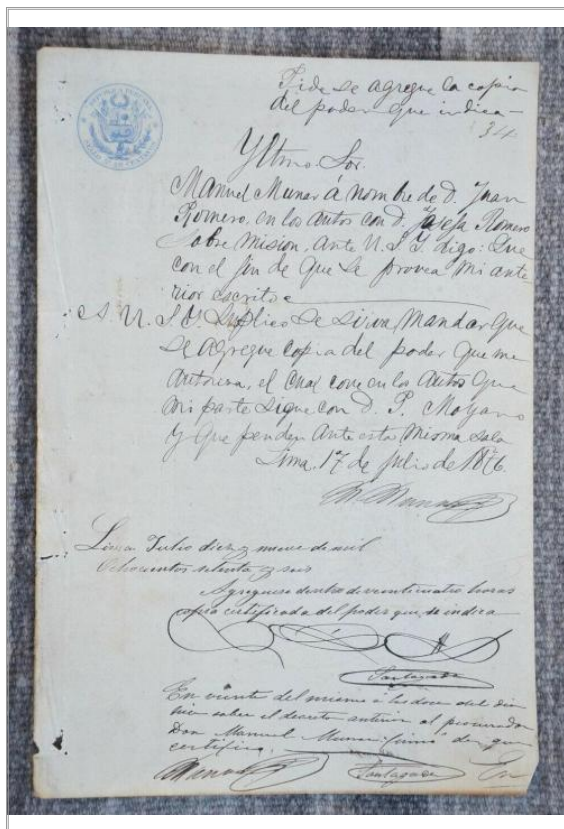 Pide se agregue la copia
del poder que indica—
34
Yltmo. Sor.
Manuel Munar á nombre de D. Juan
Romero, en los autos con D. Josefa Romero
sobre mision, ante U. S. Y. digo: Que
con el fin de que se provea mi ante-
rior escrito
A. U. S. Y. suplico se sirva mandar que
se agregue copia del poder que me
autoriza, el cual corre en los autos que
mi parte sigue con D. P. Moyano
y que penden ante esta misma sala
Lima, 17 de julio de 1876.
M. Munar
Lima Julio diez y nueve de mil
Ochocientos setenta y seis
Agreguese dentro de veinticuatro horas
copia certificada del poder que se indica—
En veinte del mismo á las doce del dia
hice saber el decreto anterior al procurador
Don Manuel Munar firmó de que
certifico.
Munar
En